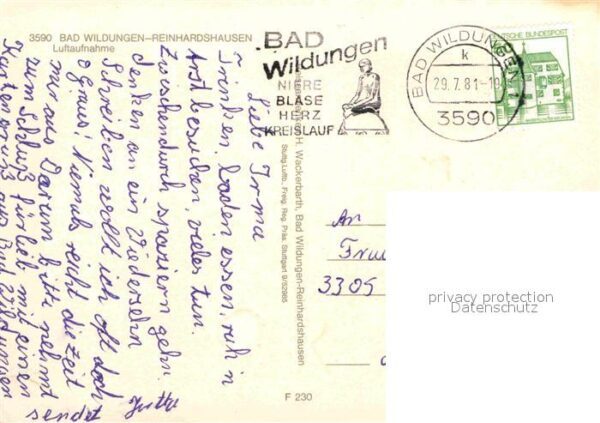 3590 BAD WILDUNGEN-REINHARDSHAUSEN
Luftaufnahme
Liebe Irma
Trinken, baden, essen, ruh'n
Arzt besuchen, vieles tun.
Zwischendurch spazieren gehn
denken an ein Wiedersehn
Schreiben wollt ich oft doch
o Graus! Niemals reicht die Zeit
nur aus Darum bitte nehmt
zum Schluß fürlieb mit einen
Kartengruß aus Bad Wildungen
sendet Jutta
H. Wackerbarth, Bad Wildungen-Reinhardshausen
Stuttg. Luftb., Freig. Reg. Präs. Stuttgart 9/52985
F 230
BAD
Wildungen
NIERE
BLASE
HERZ
KREISLAUF
BAD WILDUNGEN 1
k
29.7.81-10
3590
DEUTSCHE BUNDESPOST
An
3305
privacy protection
Datenschutz